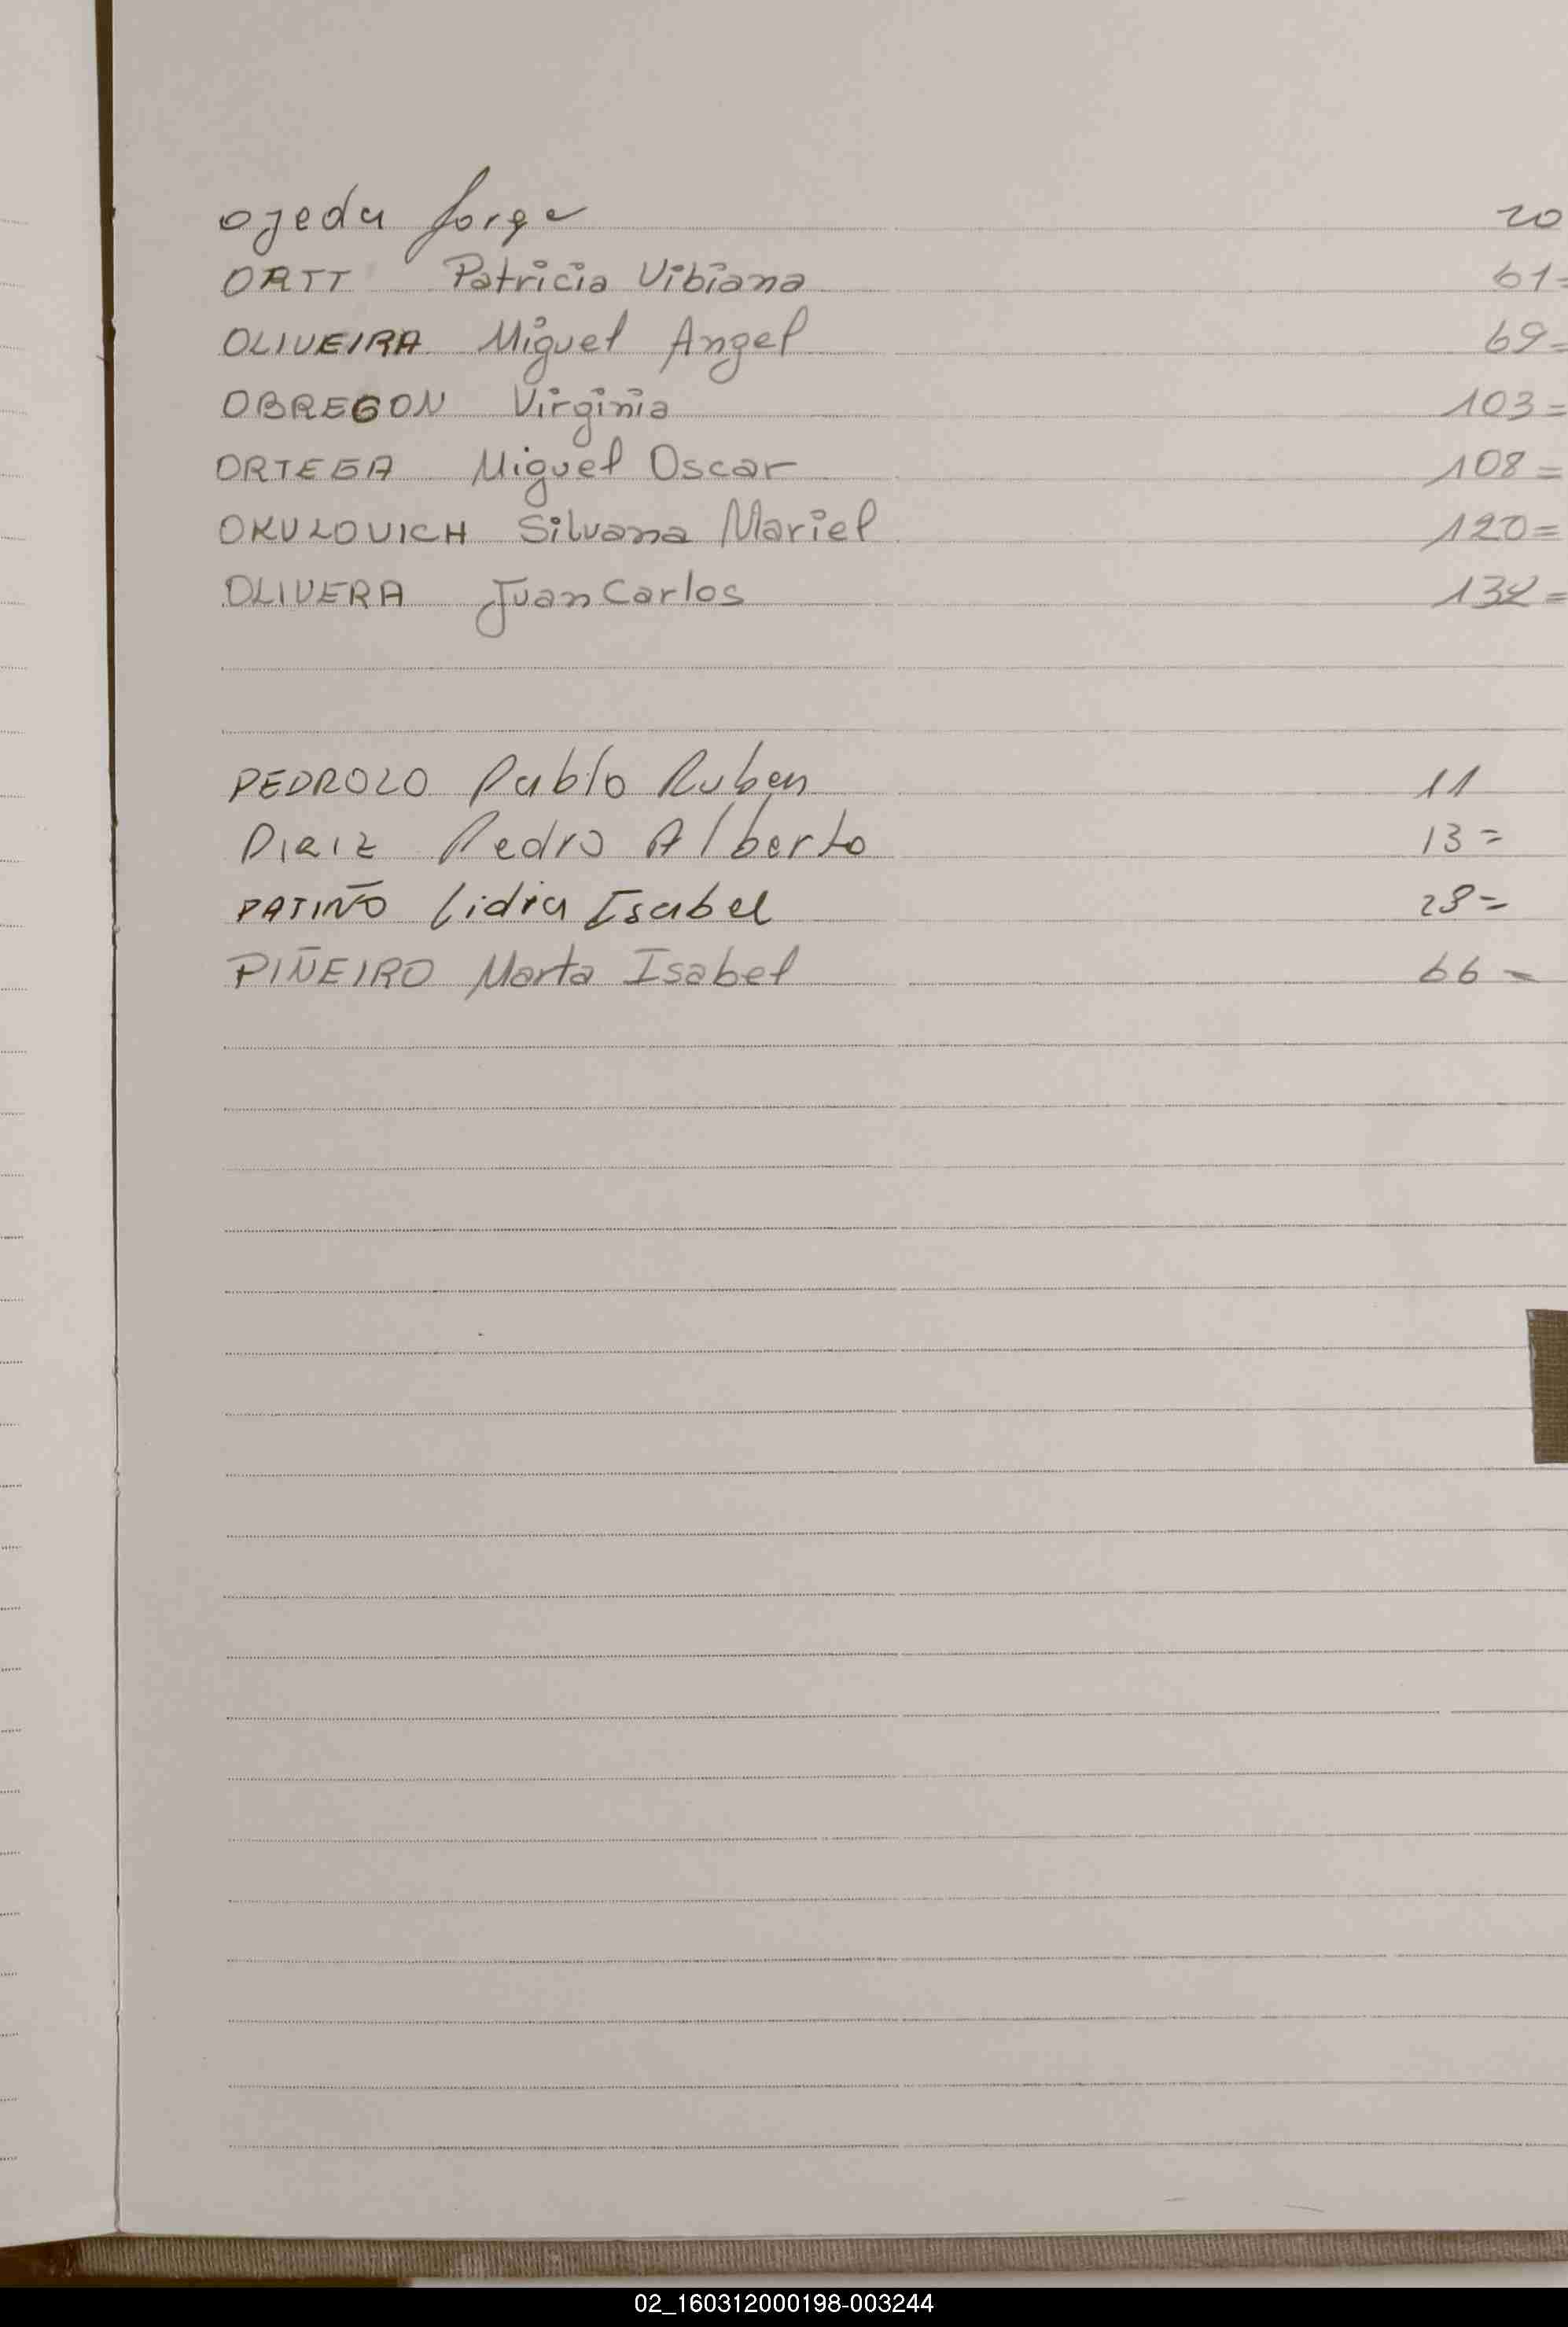 Ojeda Jorge 20
ORTT Patricia Vibiana 61=
OLIVEIRA Miguel Angel 69=
OBREGON Virginia 103=
ORTEGA Miguel Oscar 108=
OKULOVICH Silvana Mariel 120=
OLIVERA Juan Carlos 132=
PEDROZO Pablo Ruben 11
Pedro Alberto 13=
PATIÑO Lidia Isabel 28=
PIÑEIRO Marta Isabel 66=
02_160312000198-003244